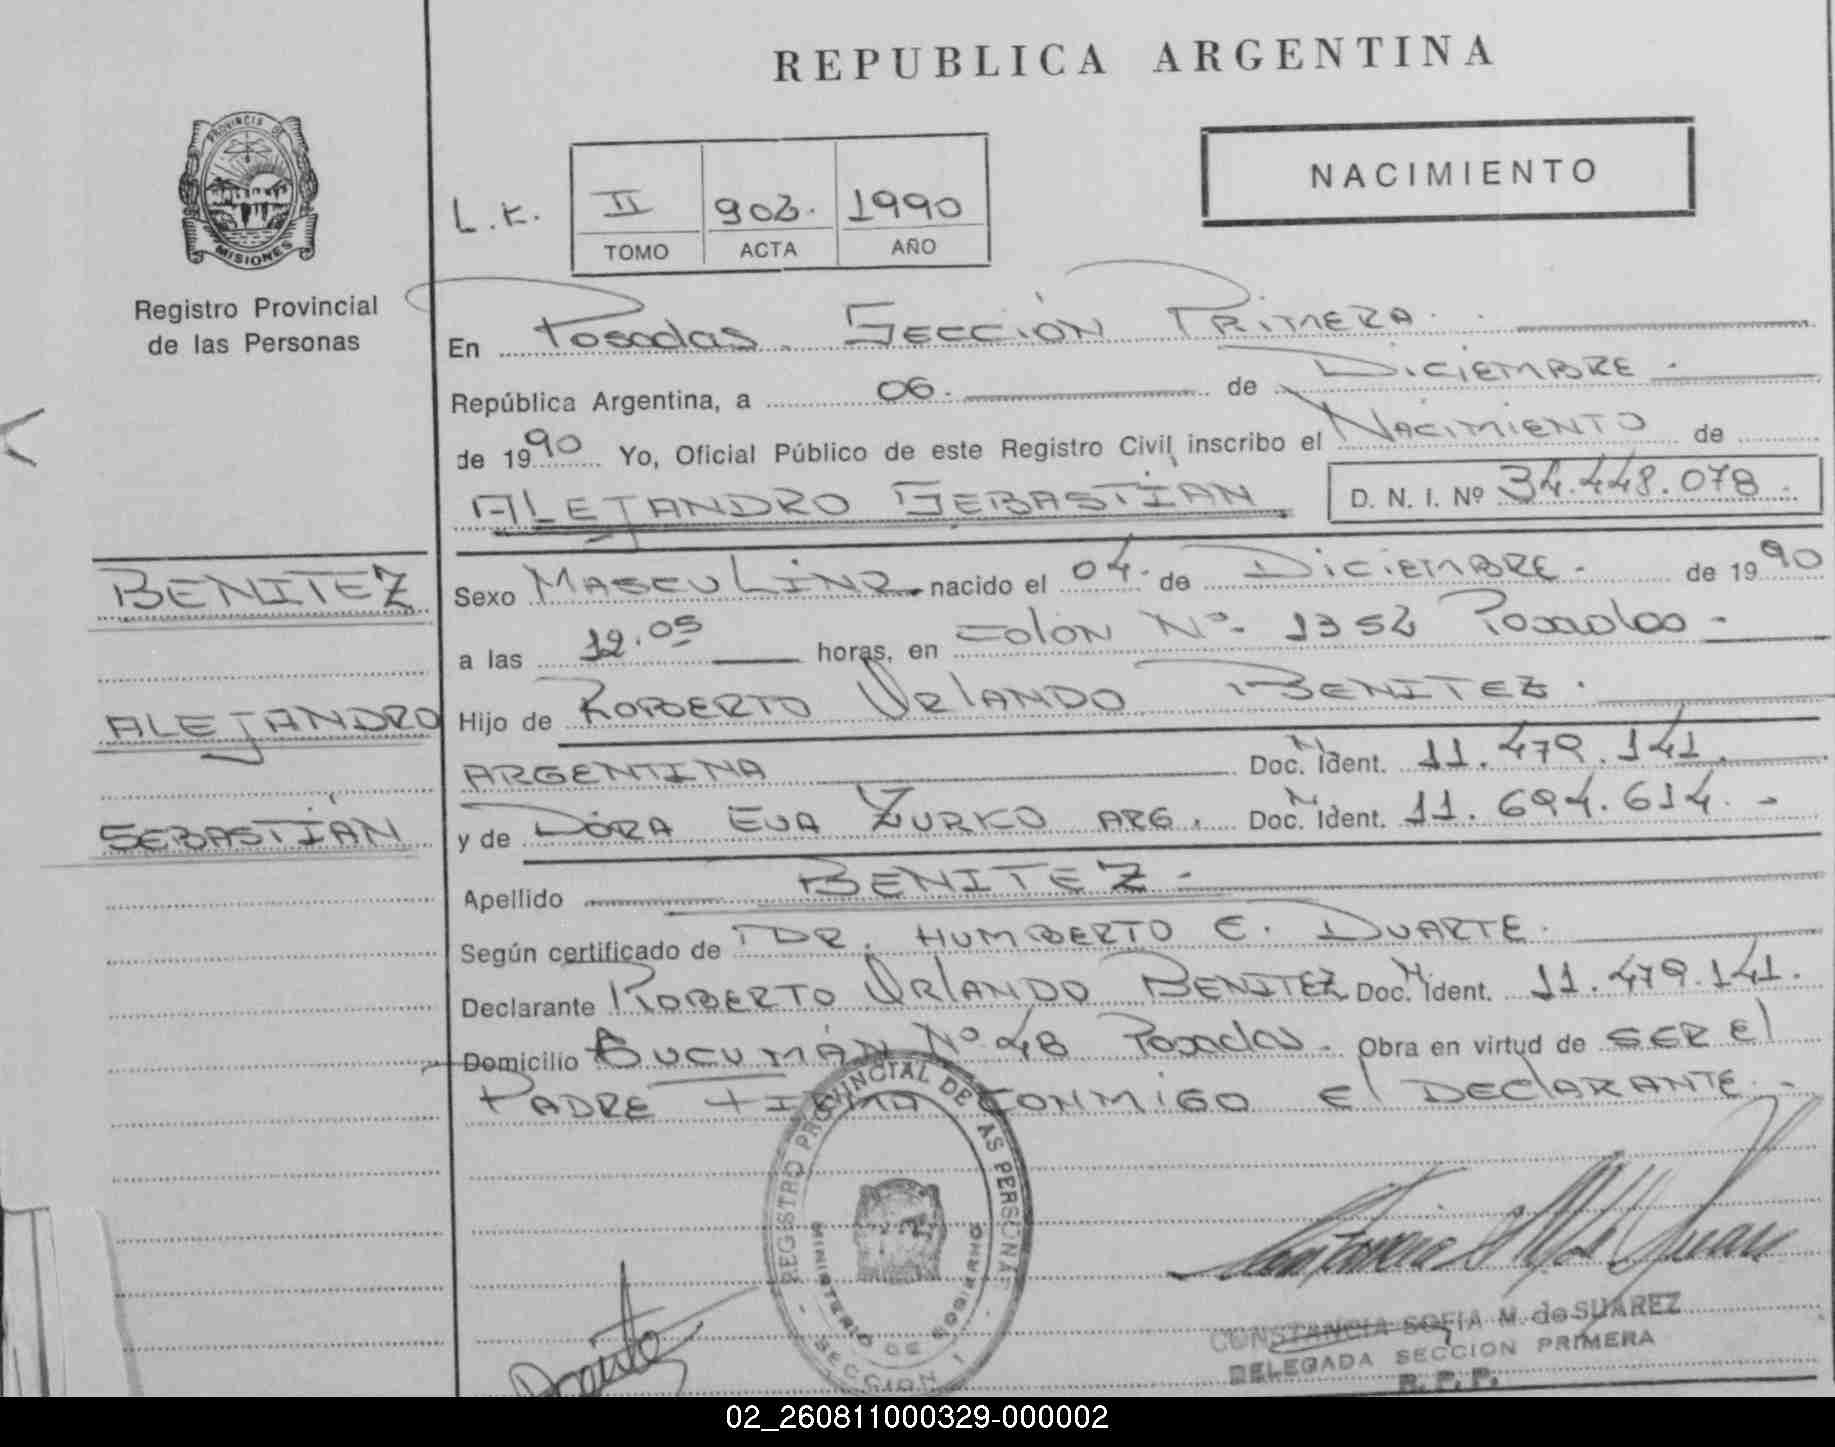 REPUBLICA ARGENTINA
PROVINCIA DE
MISIONES
Registro Provincial
de las Personas
NACIMIENTO
L.K. II 903. 1990
TOMO ACTA AÑO
En Posadas. SECCIÓN PRIMERA.
República Argentina, a 06. de DiciEMBRE.
de 1990 Yo, Oficial Público de este Registro Civil inscribo el NACIMIENTO de
ALEJANDRO SEBASTIÁN D. N. I. Nº 34.448.078.
BENITEZ
ALEJANDRO
SEBASTIÁN
Sexo MASCULINO nacido el 04. de DiciEMBRE. de 1990
a las 12.05 horas, en Colón Nº. 1352 Posadas -
Hijo de ROBERTO ORLANDO BENITEZ.
ARGENTINA Doc. Ident. 11.479.141.
y de DORA EVA ZURKO ARG. Doc. Ident. 11.694.614. -
Apellido BENITEZ -
Según certificado de DR. HUMBERTO E. DUARTE.
Declarante ROBERTO ORLANDO BENITEZ Doc. Ident. 11.479.141.
Domicilio Nº 48 Posadas. Obra en virtud de SER El
PADRE FIRMA CONMIGO El DEClARANTE. -
REGISTRO PROVINCIAL DE LAS PERSONAS
MINISTERIO DE GOBIERNO
SECCION 1
CONSTANCIA SOFIA M. de SUAREZ
DELEGADA SECCION PRIMERA
R. P. P.
02_260811000329-000002